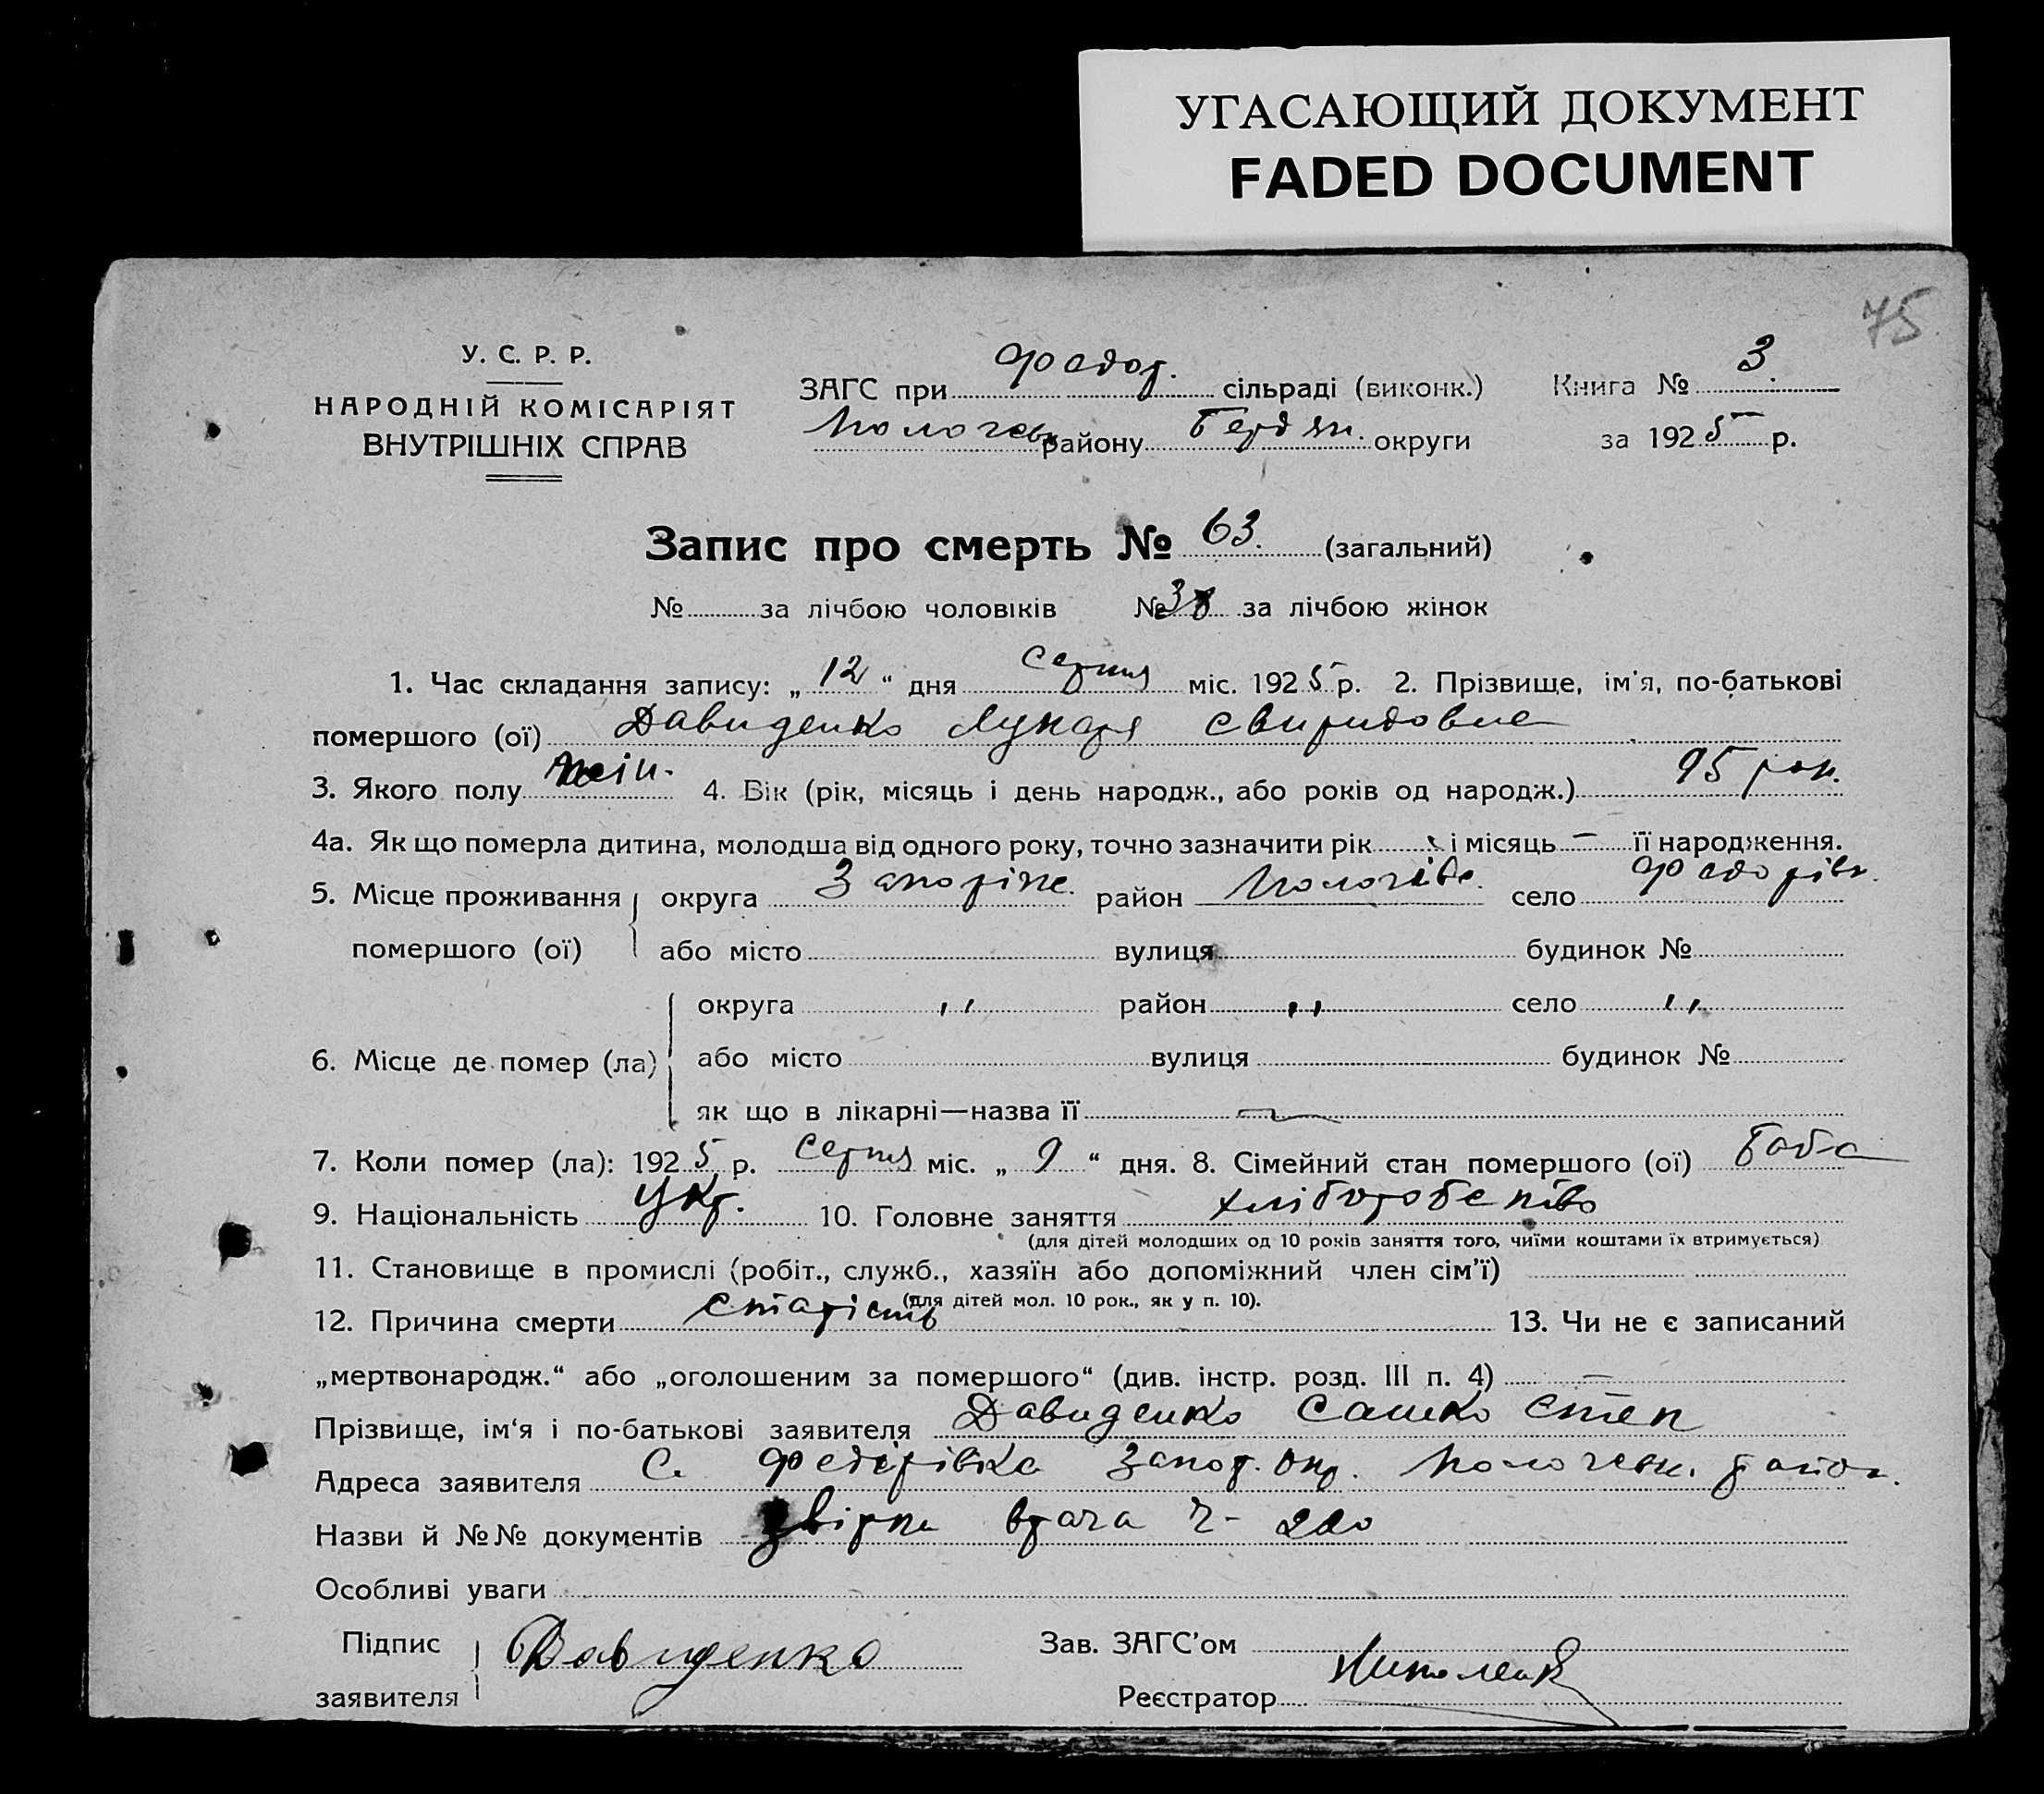 УГАСАЮЩИЙ ДОКУМЕНТ
FADED DOCUMENT
75
У. С. Р. Р.
НАРОДНІЙ КОМІСАРІЯТ
ВНУТРІШНІХ СПРАВ
ЗАГС при Федор. сільраді (виконк.) Книга № 3.
району Бердян. округи за 1925 р.
Запис про смерть № 63. (загальний)
№ за лічбою чоловіків № за лічбою жінок
1. Час складання запису: „12“ дня серпня міс. 1925 р. 2. Прізвище, ім'я, по-батькові
помершого (ої) Давиденко Свиридовна
3. Якого полу жін. 4. Вік (рік, місяць і день народж., або років од народж.) 95 рок.
4а. Як що померла дитина, молодша від одного року, точно зазначити рік і місяць — її народження.
5. Місце проживання округа Запоріже. район село Федорівк.
помершого (ої) або місто вулиця будинок №
округа ,, район ,, село ,,
6. Місце де помер (ла) або місто вулиця будинок №
як що в лікарні—назва її —
7. Коли помер (ла): 1925 р. серпня міс. „9“ дня. 8. Сімейний стан помершого (ої) баба
9. Національність Укр. 10. Головне заняття хліборобство
(для дітей молодших од 10 років заняття того, чиїми коштами їх втримується)
11. Становище в промислі (робіт., служб., хазяїн або допоміжний член сім'ї)
(для дітей мол. 10 рок., як у п. 10).
12. Причина смерти старість 13. Чи не є записаний
„мертвонародж.“ або „оголошеним за помершого“ (див. інстр. розд. III п. 4) —
Прізвище, ім‘я і по-батькові заявителя Давиденко Сашко Степ
Адреса заявителя С. Федірівка Запор. окр. район.
Назви й №№ документів врача ч- 200
Особливі уваги
Підпис Давиденко Зав. ЗАГС'ом
заявителя Реєстратор